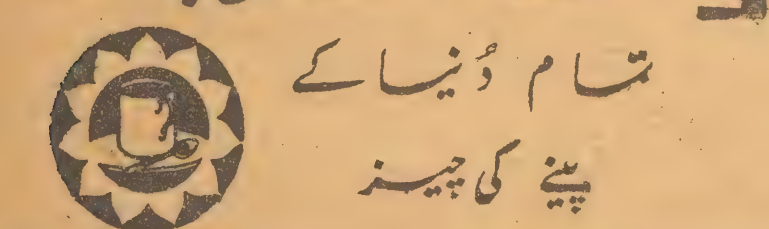 تمام دُنیا کے
پینے کی چیز